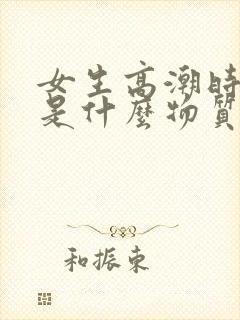 女生高潮時
是什麼物質
和振东